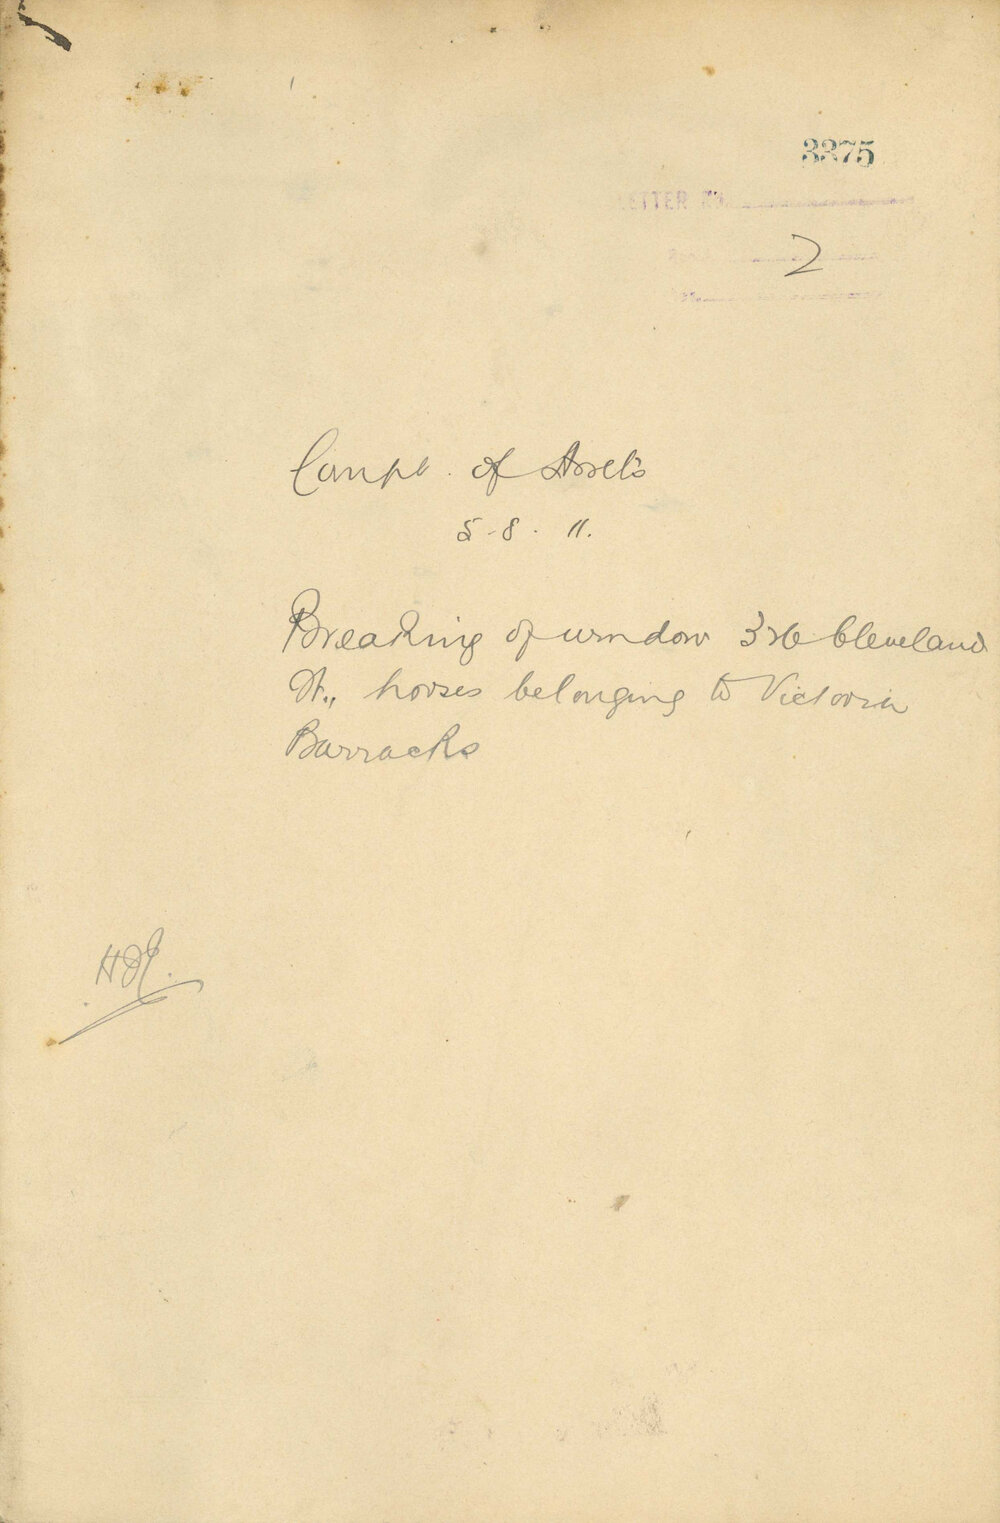 3375
LETTER No.
2
Compt. of Assets
5-8-11.
Breaking of window 326 Cleveland
St., horses belonging to Victoria
Barracks